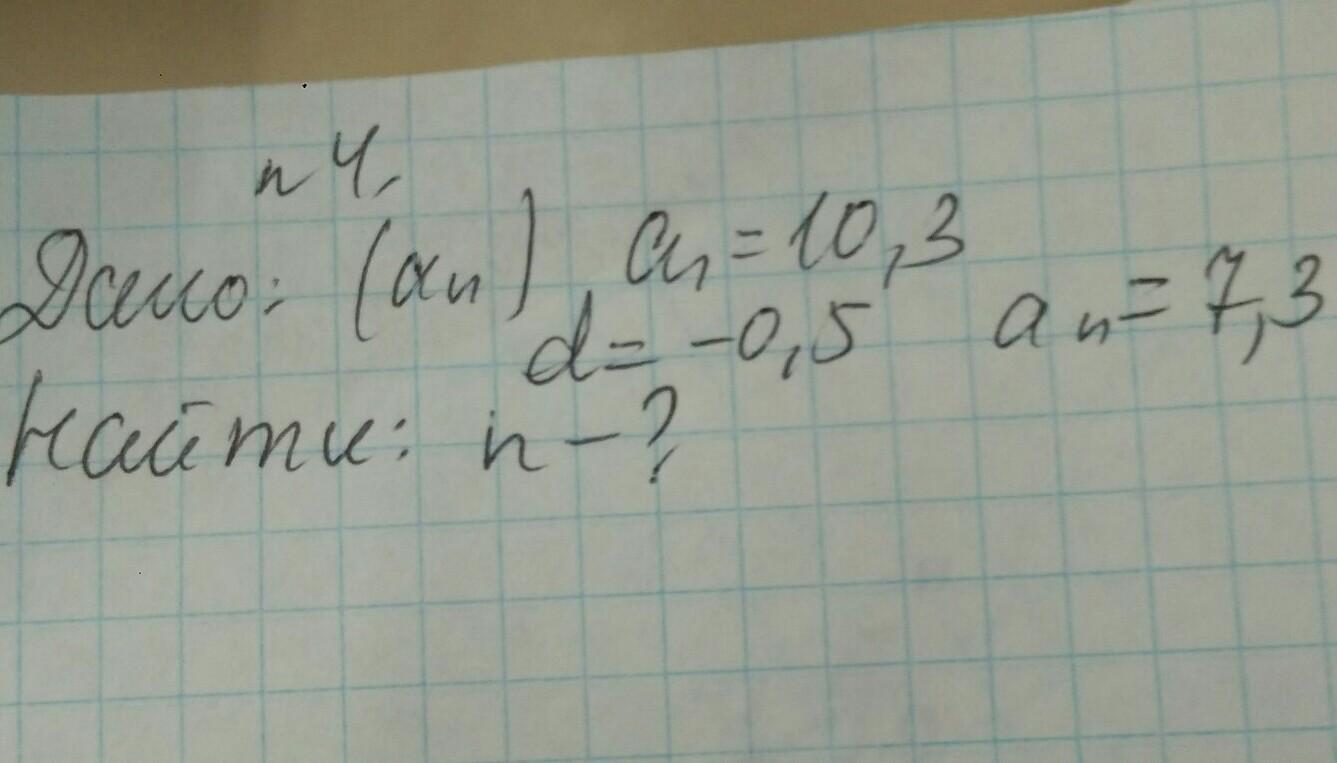 n 4.
Дано: (aₙ), a₁ = 10,3
d = -0,5 aₙ = 7,3
Найти: n - ?